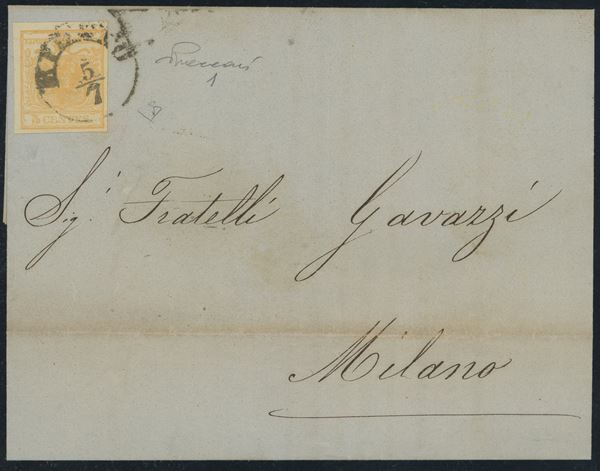 MILANO
5/7
5 CENTES
1
Sig.ʳⁱ Fratelli Gavazzi
Milano